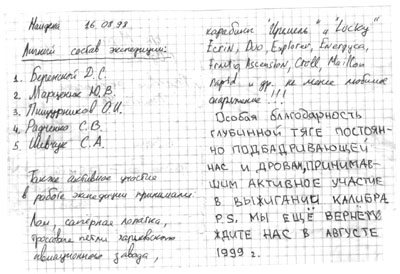 Найдена 16.08.98
Личный состав экспедиции:
1. Беренской Д.С.
2. Марценюк Ю.В.
3. Пищурников О.И.
4. Радченко С.В.
5. Шевчук С.А.
Также активное участие
в работе экспедиции принимали:
Лом, сапёрная лопатка,
тросовые петли харьковского
авиационного завода,
карабины "Иремель" и "Lucky"
Ecrin, Duo, Explorer, Energyca,
Ascension, Croll, Maillon
Rapid и др. не менее любимое
снаряжение!!!
Особая благодарность
глубинной тяге постоян-
но подбадривающей
нас и дровам, принимав-
шим активное участие
в выжигании калибра
P.S. Мы ещё вернём
ждите нас в августе
1999 г.